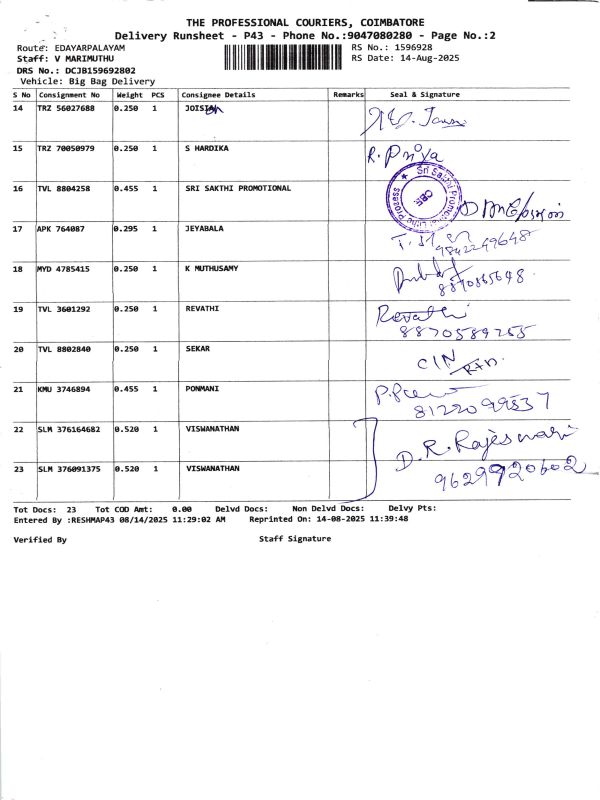 THE PROFESSIONAL COURIERS, COIMBATORE
Delivery Runsheet - P43 - Phone No.:9047080280 - Page No.:2
Route: EDAYARPALAYAM RS No.: 1596928
Staff: V MARIMUTHU RS Date: 14-Aug-2025
DRS No.: DCJB159692802
Vehicle: Big Bag Delivery
S No Consignment No Weight PCS Consignee Details Remarks Seal & Signature
14 TRZ 56027688 0.250 1
15 TRZ 70050979 0.250 1 S HARDIKA R. Priya
16 TVL 8804258 0.455 1 SRI SAKTHI PROMOTIONAL
Sri Sakthi Promotional Litho Prozess CBE
17 APK 764087 0.295 1 JEYABALA
9842249648
18 MYD 4785415 0.250 1 K MUTHUSAMY
8870865648
19 TVL 3601292 0.250 1 REVATHI Revathi
8870589255
20 TVL 8802840 0.250 1 SEKAR
21 KMU 3746894 0.455 1 PONMANI
8122099537
22 SLM 376164682 0.520 1 VISWANATHAN D.R. Rajeswari
23 SLM 376091375 0.520 1 VISWANATHAN 9629920602
Tot Docs: 23 Tot COD Amt: 0.00 Delvd Docs: Non Delvd Docs: Delvy Pts:
Entered By :RESHMAP43 08/14/2025 11:29:02 AM Reprinted On: 14-08-2025 11:39:48
Verified By Staff Signature